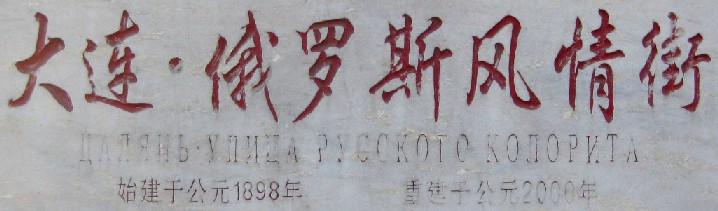 大连·俄罗斯风情街
ДАЛЯНЬ·УЛИЦА РУССКОГО КОЛОРИТА
始建于公元1898年 重建于公元2000年